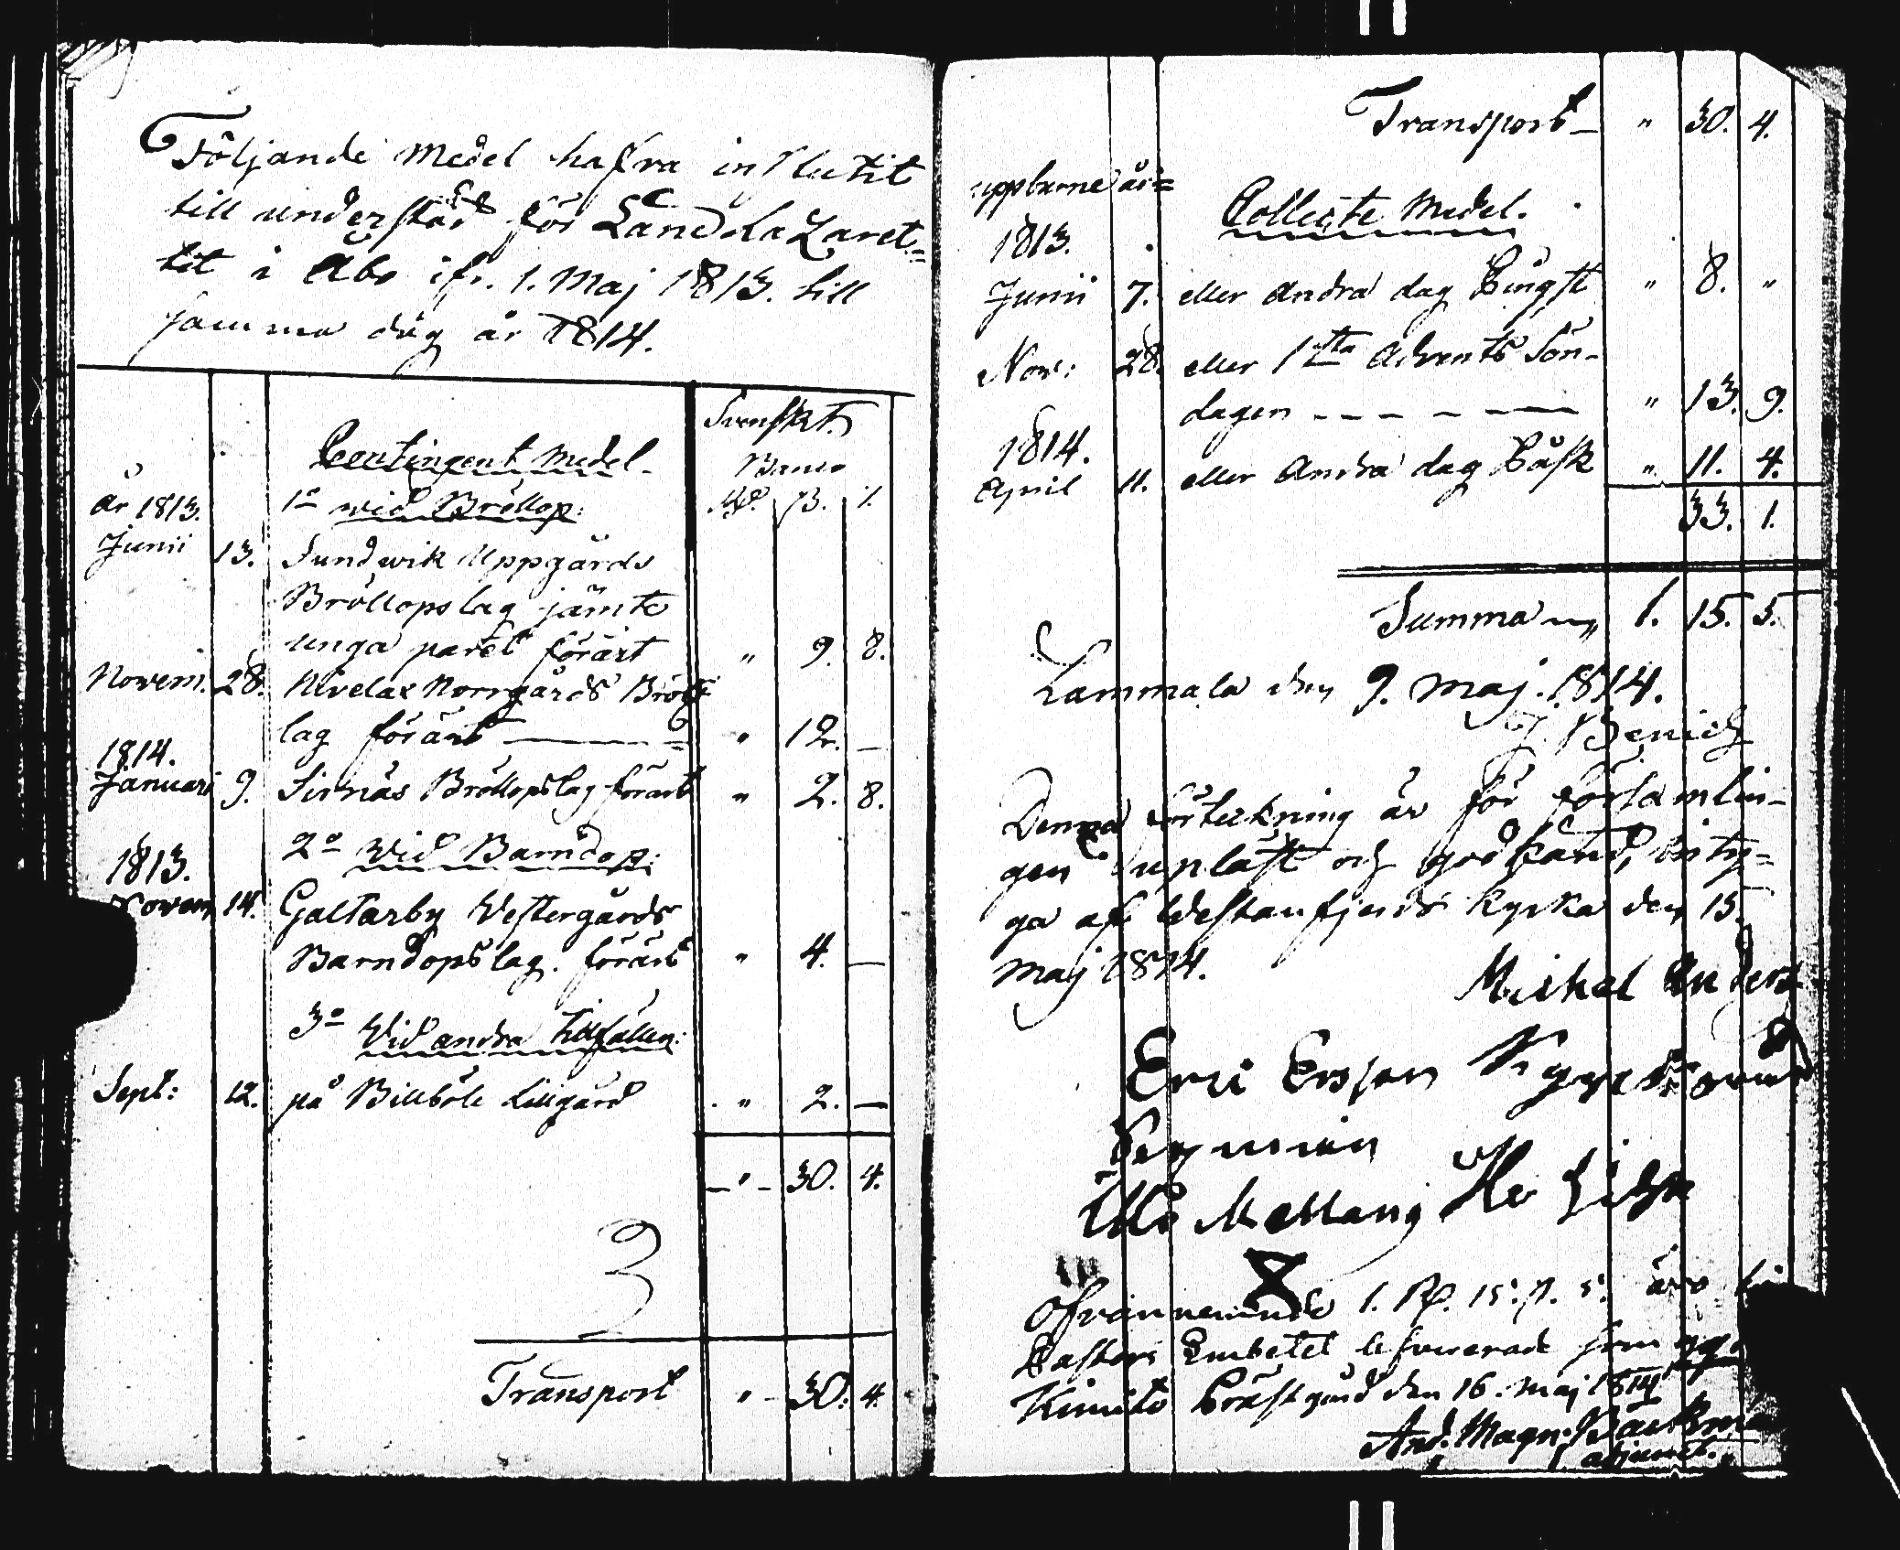 Följande Medel hafva influtit
till understöd för Länd La Zaret=
tet i Åbo ifr. 1. Maj 1813. till
samma dag år 1814.
Svenskt.
Contingent Medel.
Banco
År 1813. 1o wid Bröllop: Rd. ß. r.
Junii 13. Sundwik Uppgårds
Bröllopslag jämte
unga paret förärt " 9. 8.
Novem. 28. Nivelax Norrgårds Bröll
lag förärt " 12. —
1814.
Januari 9. Sirnäs Bröllopslag förärt " 2. 8.
2o wid Barndop:
1813.
Novem 14. Galtarby Westergårds
Barndopslag. förärt " 4. —
3o Wid andra tillfällen:
Sept: 12. på Billböle Lillgård " 2. —
— " — 30. 4.
3
Transport " - 30. 4.
Transport — " 30. 4.
uppburne år=
Collecte Medel.
1813.
Junii 7. eller andra dag Pingst " 8. "
Nov: 28. eller 1sta Advents Sön-
dagen — — — — — " 13. 9.
1814.
April 11. eller Andra dag Påsk " 11. 4.
33. 1.
Summa " 1. 15. 5.
Lammala den 9. Maj. 1814.
J. Benich
Denna förtekning är för församlin-
gen upläst och godkänd, intÿ=
ga af Westanfjerds Kyrka den 15.
Maj 1814.
Michel Anders
Eric Ersson
Ofvannemnde 1. Rd. 15. ß. 5. äro
Pastors Embetet lefvererade som
Kimito Prästgård den 16. Maj 1814
And. Magn. Bäckman
adjunct.